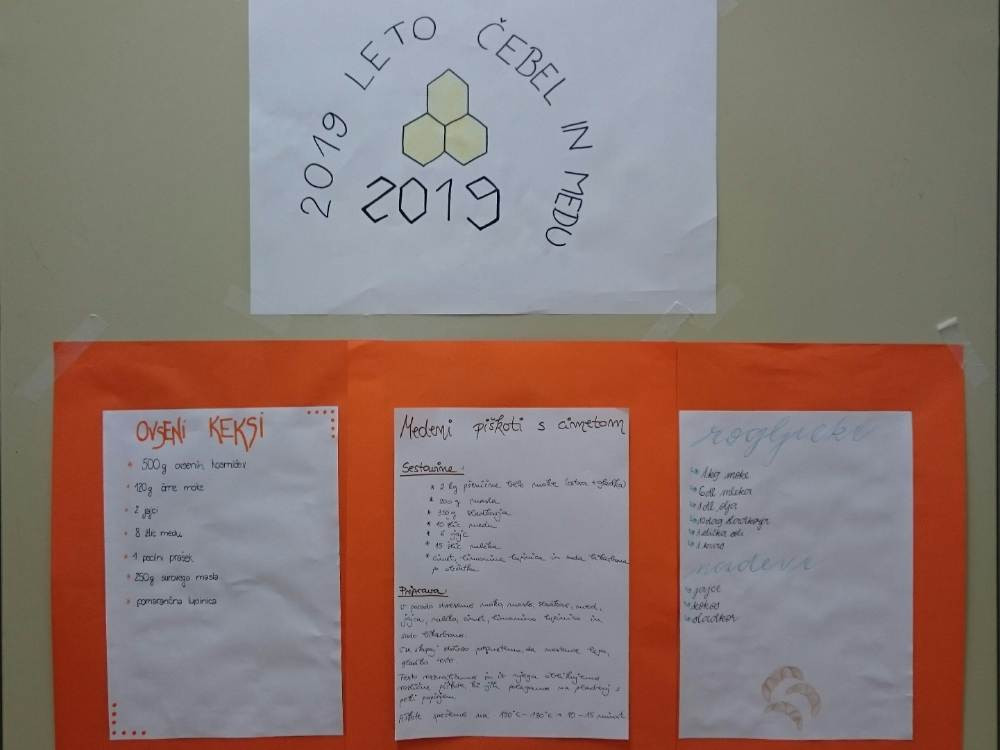 2019 LETO ČEBEL IN MEDU
2019
OVSENI KEKSI
* 500g ovsenih kosmičev
* 120g črne moke
* 2 jajci
* 8 žlic medu
* 1 pecilni prašek
* 250g surovega masla
* pomarančna lupinica
Medeni piškoti s cimetom
Sestavine:
* 2 kg pšenične bele moke (ostra + gladka)
* 200 g masla
* 350 g sladkorja
* 10 žlic medu
* 6 jajc
* 15 žlic mleka
* cimet, limonina lupinica in soda bikarbona
po občutku
Priprava:
V posodo stresemo moko, maslo, sladkor, med,
jajca, mleko, cimet, limonino lupinico in
sodo bikarbono.
Vse skupaj dobro pregnetemo, da nastane lepo,
gladko testo.
Testo razvaljamo in iz njega oblikujemo
različne piškote, ki jih polagamo na pladenj s
peki papirjem.
Piškote spečemo na 150°C - 180°C → 10 - 15 minut.
rogljički
1kg moke
6dl mleka
1dl olja
10dag sladkorja
1žlička soli
1 kvas
nadevi
jajce
kokos
sladkor